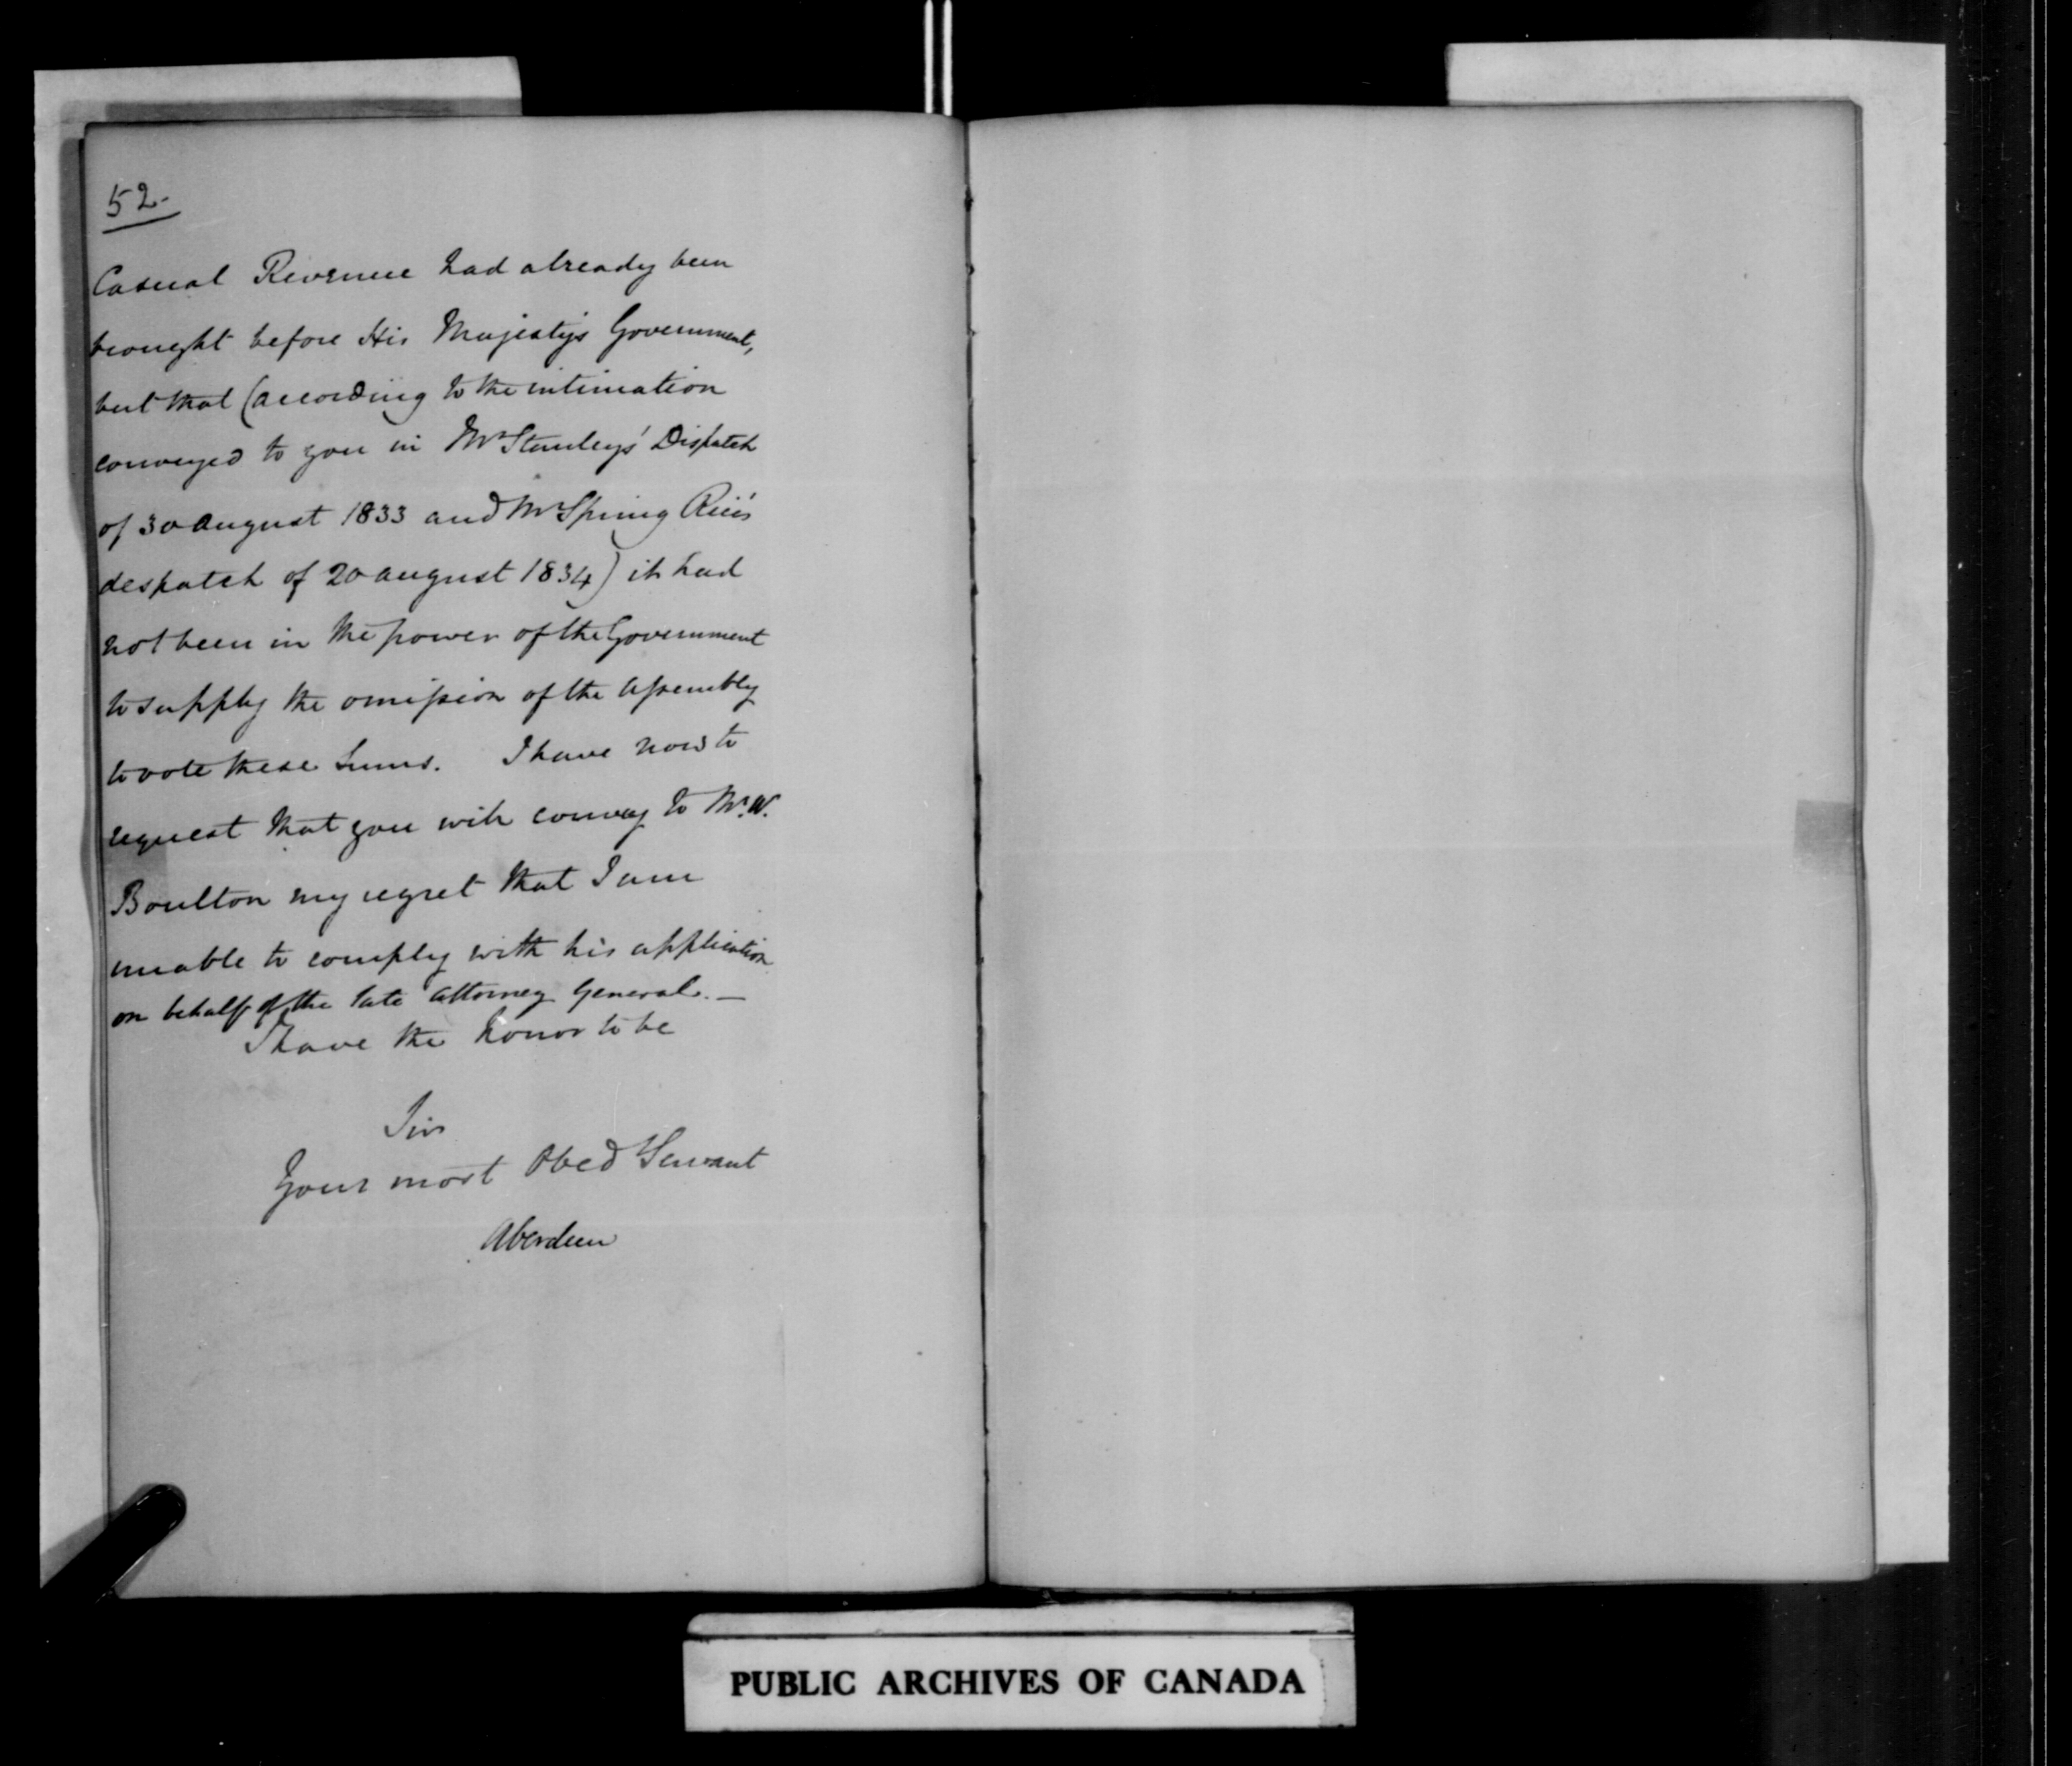 52.
Casual Revenue had already been
brought before His Majesty's Government,
but that (according to the intimation
conveyed to you in Mr Stanley's Dispatch
of 30 August 1833 and Mr Spring Rice's
despatch of 20 August 1834) it had
not been in the power of the Government
to supply the omission of the Assembly
to vote these Sums. I have now to
request that you will convey to Mr. W.
Boulton my regret that I am
unable to comply with his application
on behalf of the late Attorney General. —
I have the honor to be
Sir
Your most Obed Servant
Aberdeen
PUBLIC ARCHIVES OF CANADA